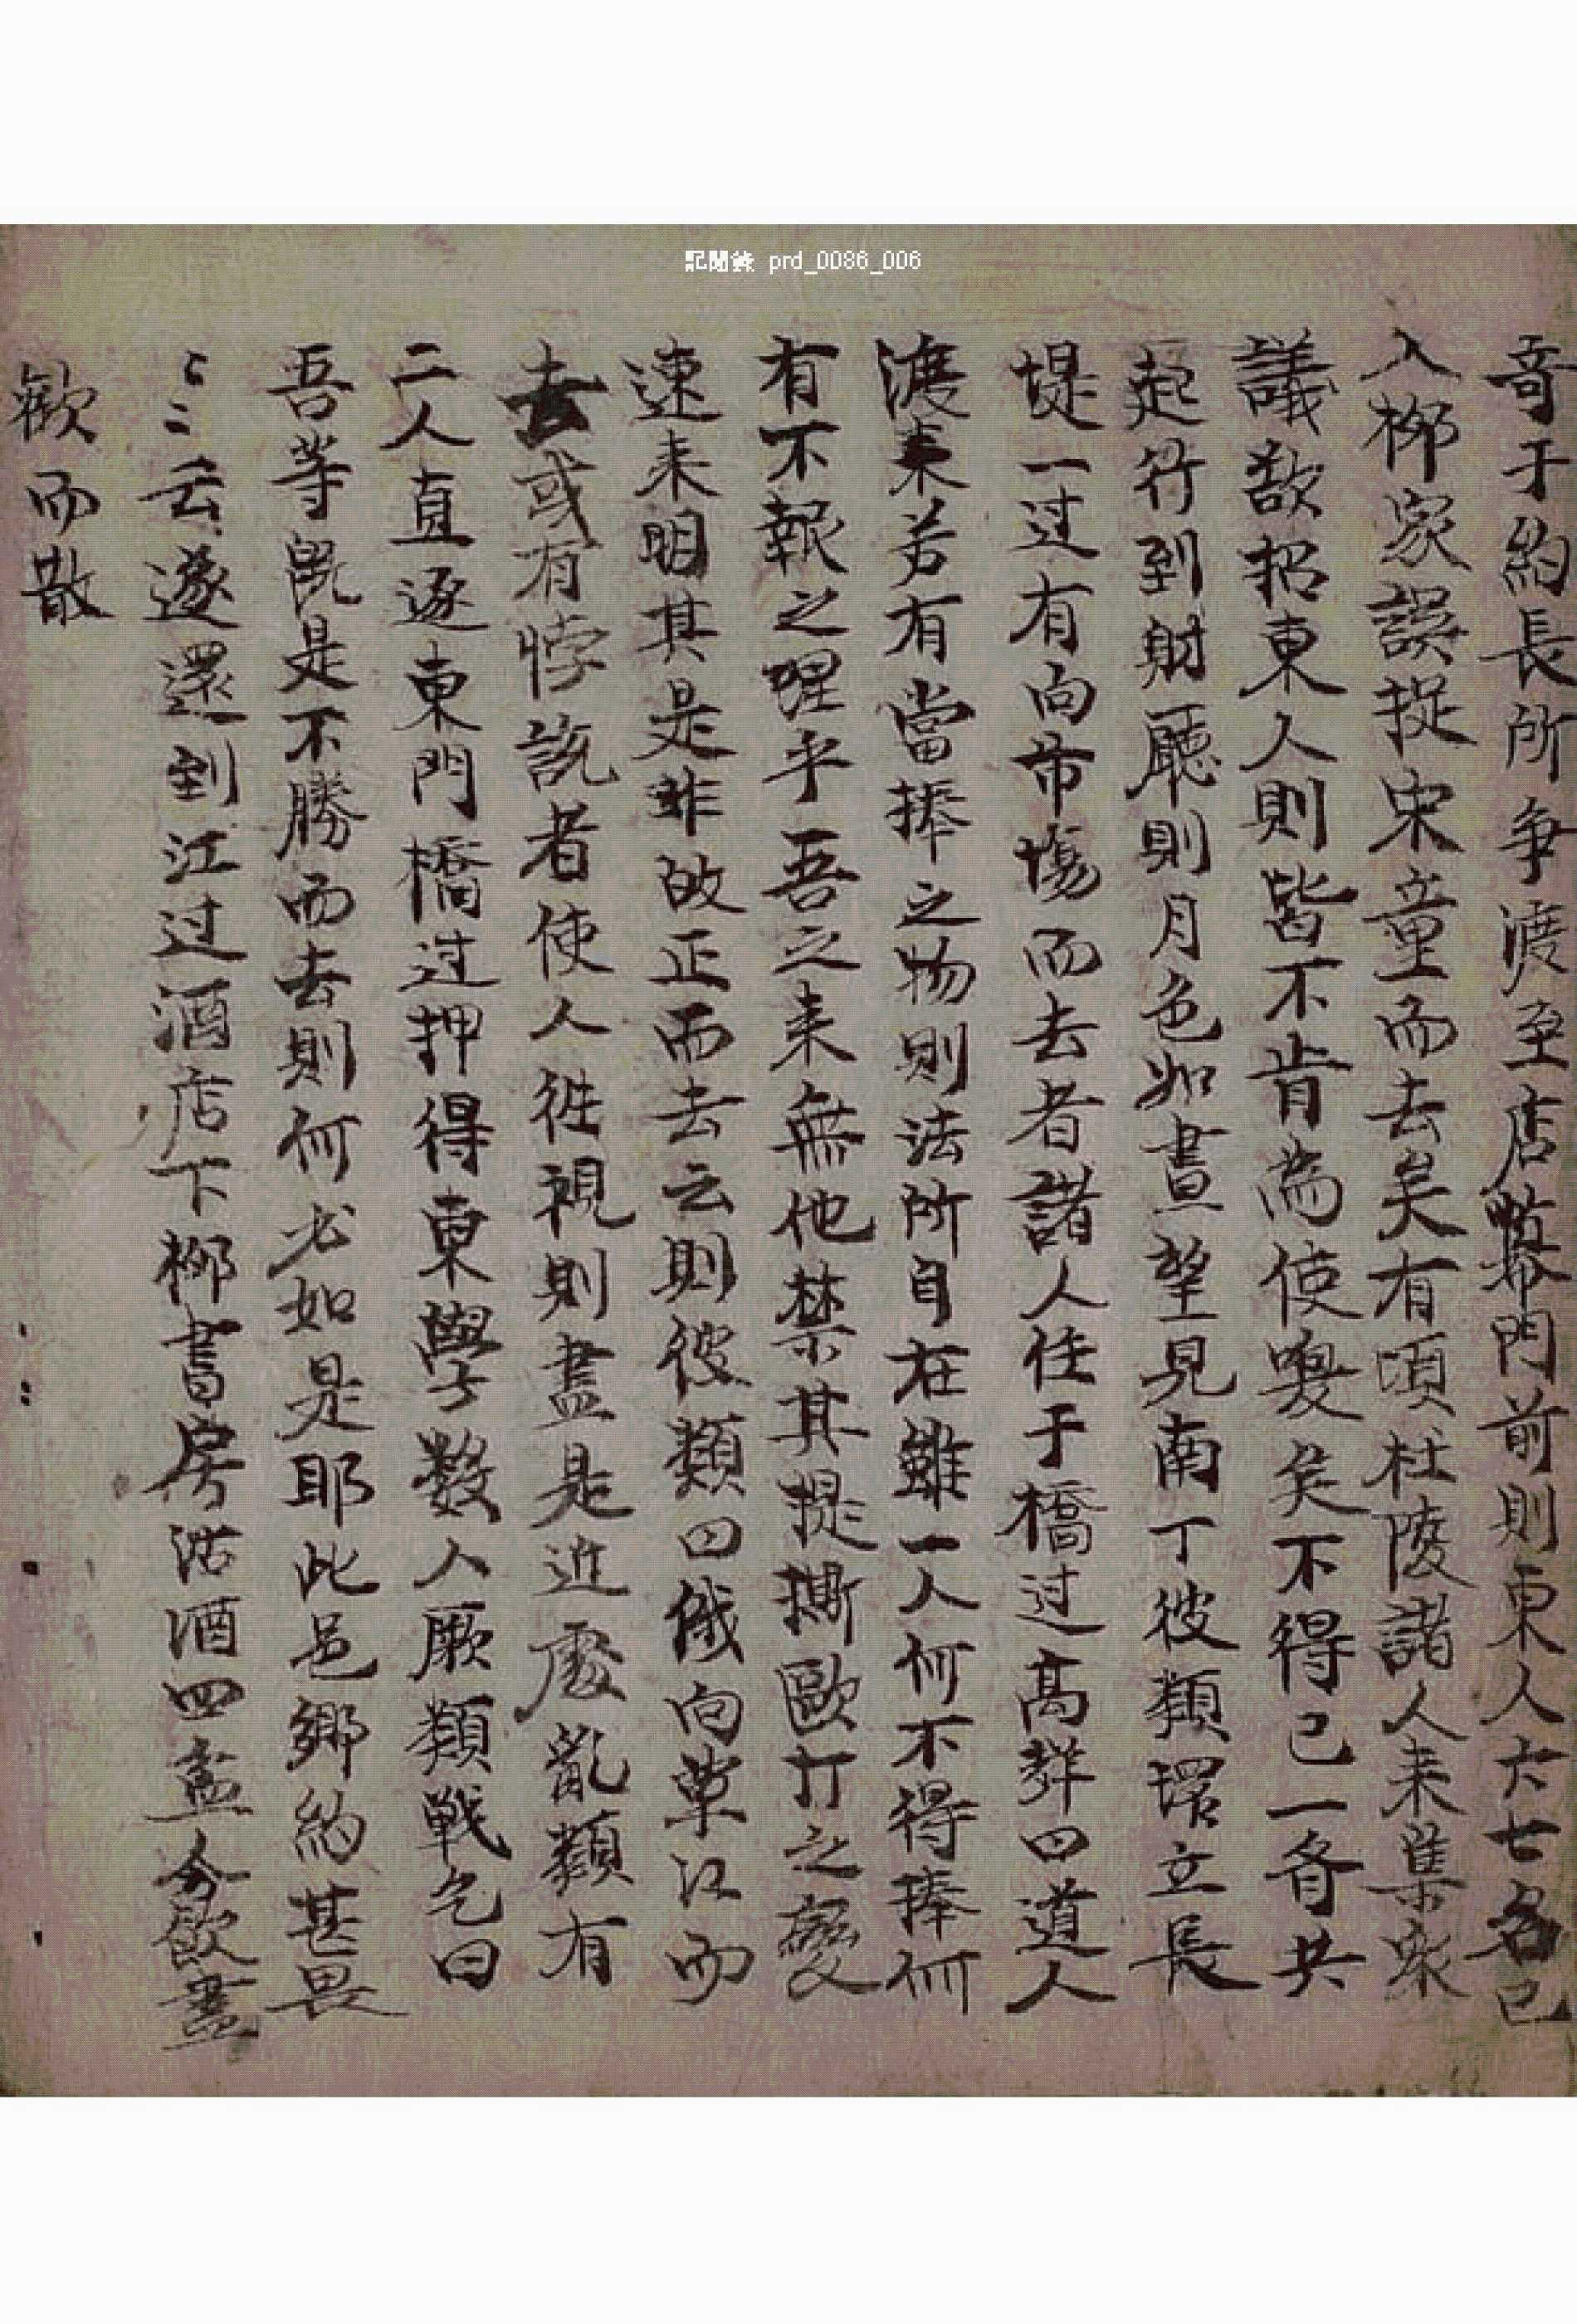 記聞錄 prd_0086_006
奇于約長所爭渡至店幕門前則東人六七名已
入柳家誤捉宋童而去矣有頃杜陵諸人来集家
議欲招東人則皆不肯為使喚矣不得已一齊共
起行到射廳則月色如晝望見南丁彼類環立長
堤一过有向市場而去者諸人住于橋过高群曰道人
渡来若有當捧之物則法所自在雖一人何不得捧何
有不報之理乎吾之来無他禁其提撕歐打之變
速来明其是非故正而去云則彼類曰俄向草江而
去或有悖說者使人往視則盡是近處亂類有
二人直逐東門橋过押得東學數人厥類戰乞曰
吾等旣是不勝而去則何必如是耶此邑鄉約甚畏
〻〻云遂還到江过酒店下柳書房沽酒四盃分飮盡
歡而散